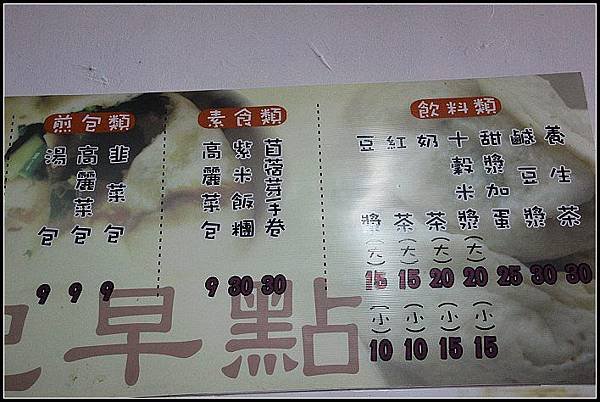 煎包類
湯包 9
高麗菜包 9
韭菜包 9
素食類
高麗菜包 9
紫米飯糰 30
苜蓿芽手卷 30
飲料類
豆漿 (大) 15 (小) 10
紅茶 (大) 15 (小) 10
奶茶 (大) 20 (小) 15
十穀米漿 (大) 20 (小) 15
甜漿加蛋 25
鹹豆漿 30
養生茶 30
早點